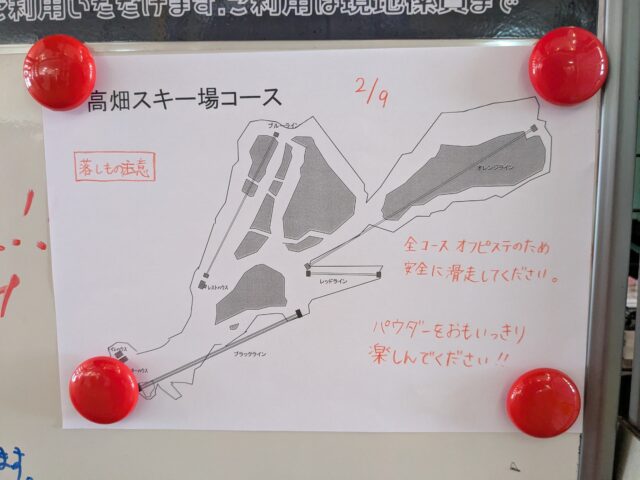 を利用いただけます.ご利用は現地係員まで
高畑スキー場コース
2/9
ブルーライン
落しもの注意
オレンジライン
全コース オフピステのため
安全に滑走してください。
レストハウス
レッドライン
パウダーをおもいっきり
楽しんでください!!
ブラックライン
ます。